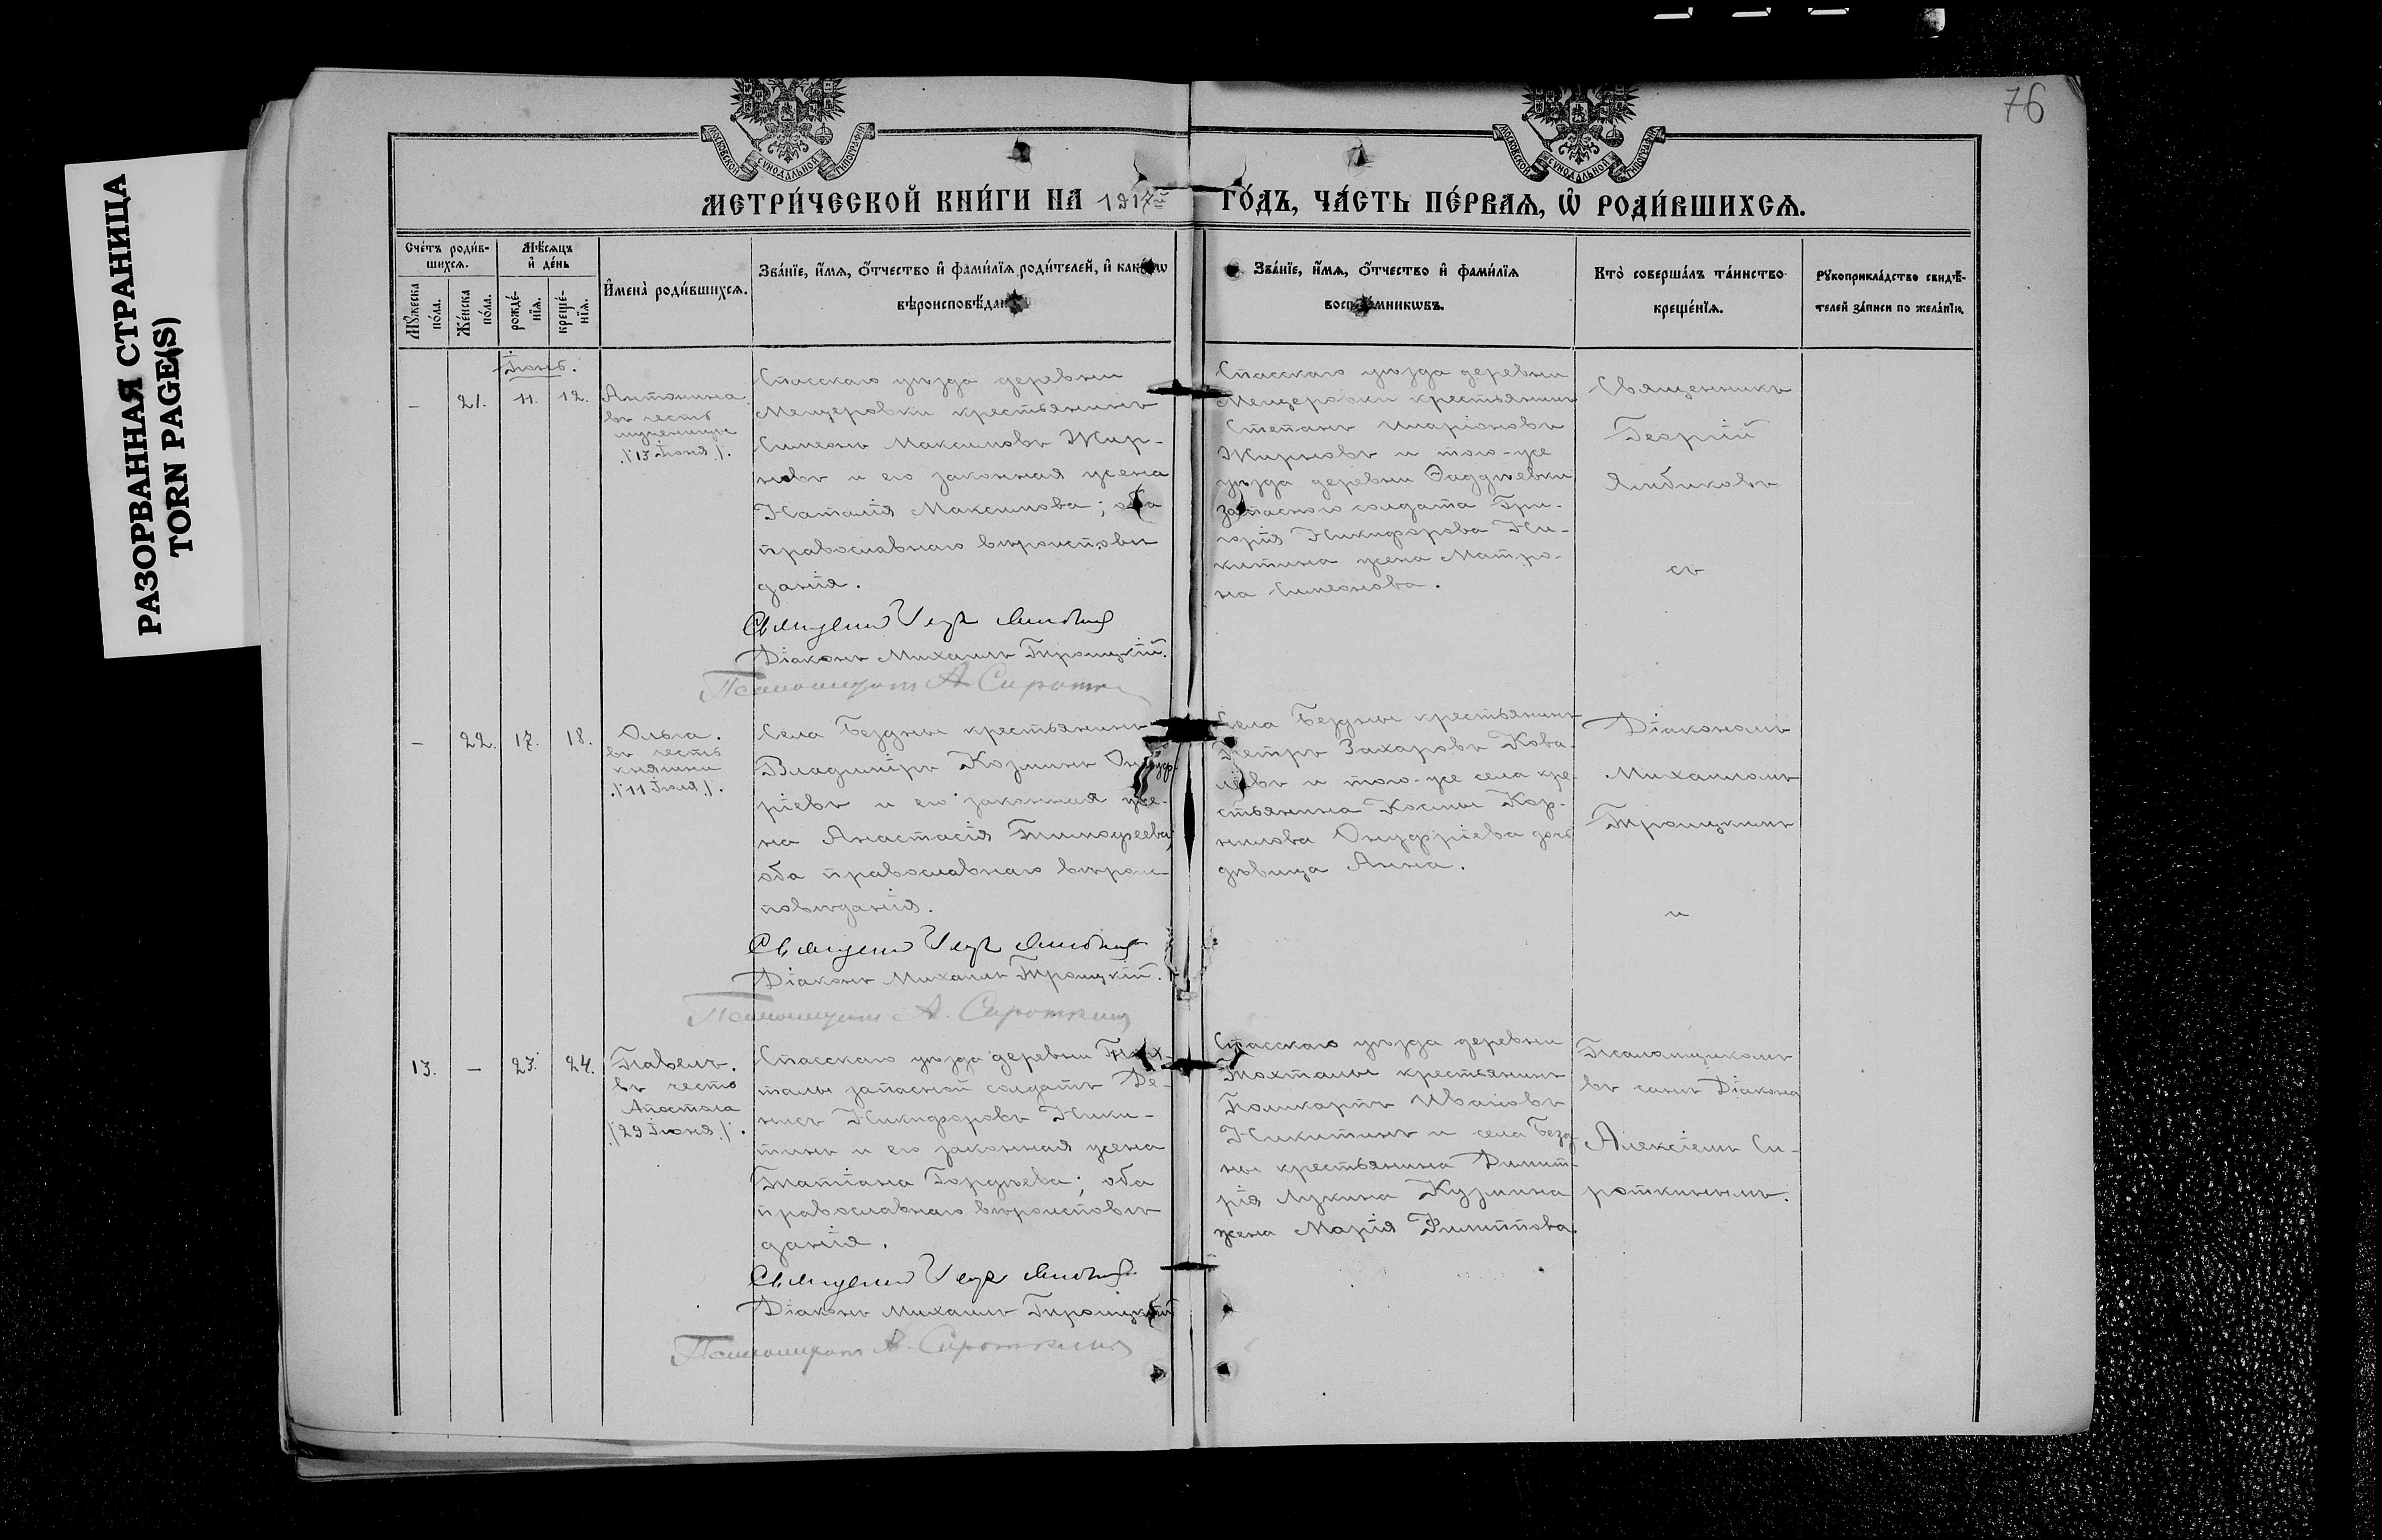 РАЗОРВАННАЯ СТРАНИЦА
TORN PAGE(S)
76
МОСКОВСКОЙ СѴНОДАЛЬНОЙ ТИПОГРАФІИ
МОСКОВСКОЙ СѴНОДАЛЬНОЙ ТИПОГРАФІИ
МЕТРИ́ЧЕСКОЙ КНИ́ГИ НА 1917й ГО́ДЪ, ЧА́СТЬ ПЕ́РВАѦ, Ѡ҆ РОДИ́ВШИХСѦ.
Сче́тъ роди́в-
шихсѧ.
Мꙋ́жеска по́ла.
Же́нска по́ла.
Мѣ́сяцъ
и҆ де́нь
рожде́-
нїѧ.
креще́-
нїѧ.
И҆мена̀ роди́вшихсѧ.
Зва́нїе, и҆́мѧ, ѻ҆́тчество и҆ фами́лїѧ роди́телей, и҆
вѣроисповѣ́данїѧ
Зва́нїе, и҆́мѧ, ѻ҆́тчество и҆ фами́лїѧ
воспрїе́мникѡвъ.
Кто̀ соверша́лъ та́инство
креще́нїѧ.
Рꙋкоприкла́дство свидѣ́-
телей за́писи по жела́нїю.
Іюнь.
— 21. 11. 12.
Антонина
въ честь
мученицы
/13 Іюня/.
Спасскаго уѣзда деревни
Мещеровки крестьянинъ
Симеонъ Максимовъ Жир-
новъ и его законная жена
Наталія Максимова; оба
православнаго вѣроисповѣ
данія.
Священ
Діаконъ Михаилъ Троицкій.
Псаломщикъ А Сиротк
Спасскаго уѣзда деревни
Мещеровки крестьянинъ
Степанъ Иларіоновъ
Жирновъ и того-же
уѣзда деревни Ѳаддѣевки
запасного солдата Гри-
горія Никифорова Ни-
китина жена Матро-
на Симеонова.
Священникъ
Георгій
Ялбиковъ
съ
— 22. 17. 18.
Ольга.
въ честь
княгини
/11 Іюля/.
Села Бездны крестьянинъ
Владиміръ Козминъ Онуф-
ріевъ и его законная же-
на Анастасія Тимофеева;
оба православнаго вѣроис-
повѣданія.
Священ
Діаконъ Михаилъ Троицкій.
Псаломщикъ А. Сироткинъ
Села Бездны крестьянинъ
Петръ Захаровъ Кова-
левъ и того-же села кре-
стьянина Космы Кор-
нилова Онуфріева дочь
дѣвица Анна.
Діакономъ
Михаиломъ
Троицкимъ
и
13. — 23. 24.
Павелъ.
въ честь
Апостола
/29 Іюня/.
Спасскаго уѣзда деревни Тох-
талы запасной солдатъ Де-
нисъ Никифоровъ Ники-
тинъ и его законная жена
Татіана Гордѣева; оба
православнаго вѣроисповѣ
данія.
Священ
Діаконъ Михаилъ Троицкій
Псаломщикъ А. Сироткинъ
Спасскаго уѣзда деревни
Тохталы крестьянинъ
Поликарпъ Ивановъ
Никитинъ и села Безд
ны крестьянина Димит-
рія Лукина Кузмина
жена Марія Филиппова.
Псаломщикомъ
въ санѣ Діакона
Алексіемъ Си-
роткинымъ.